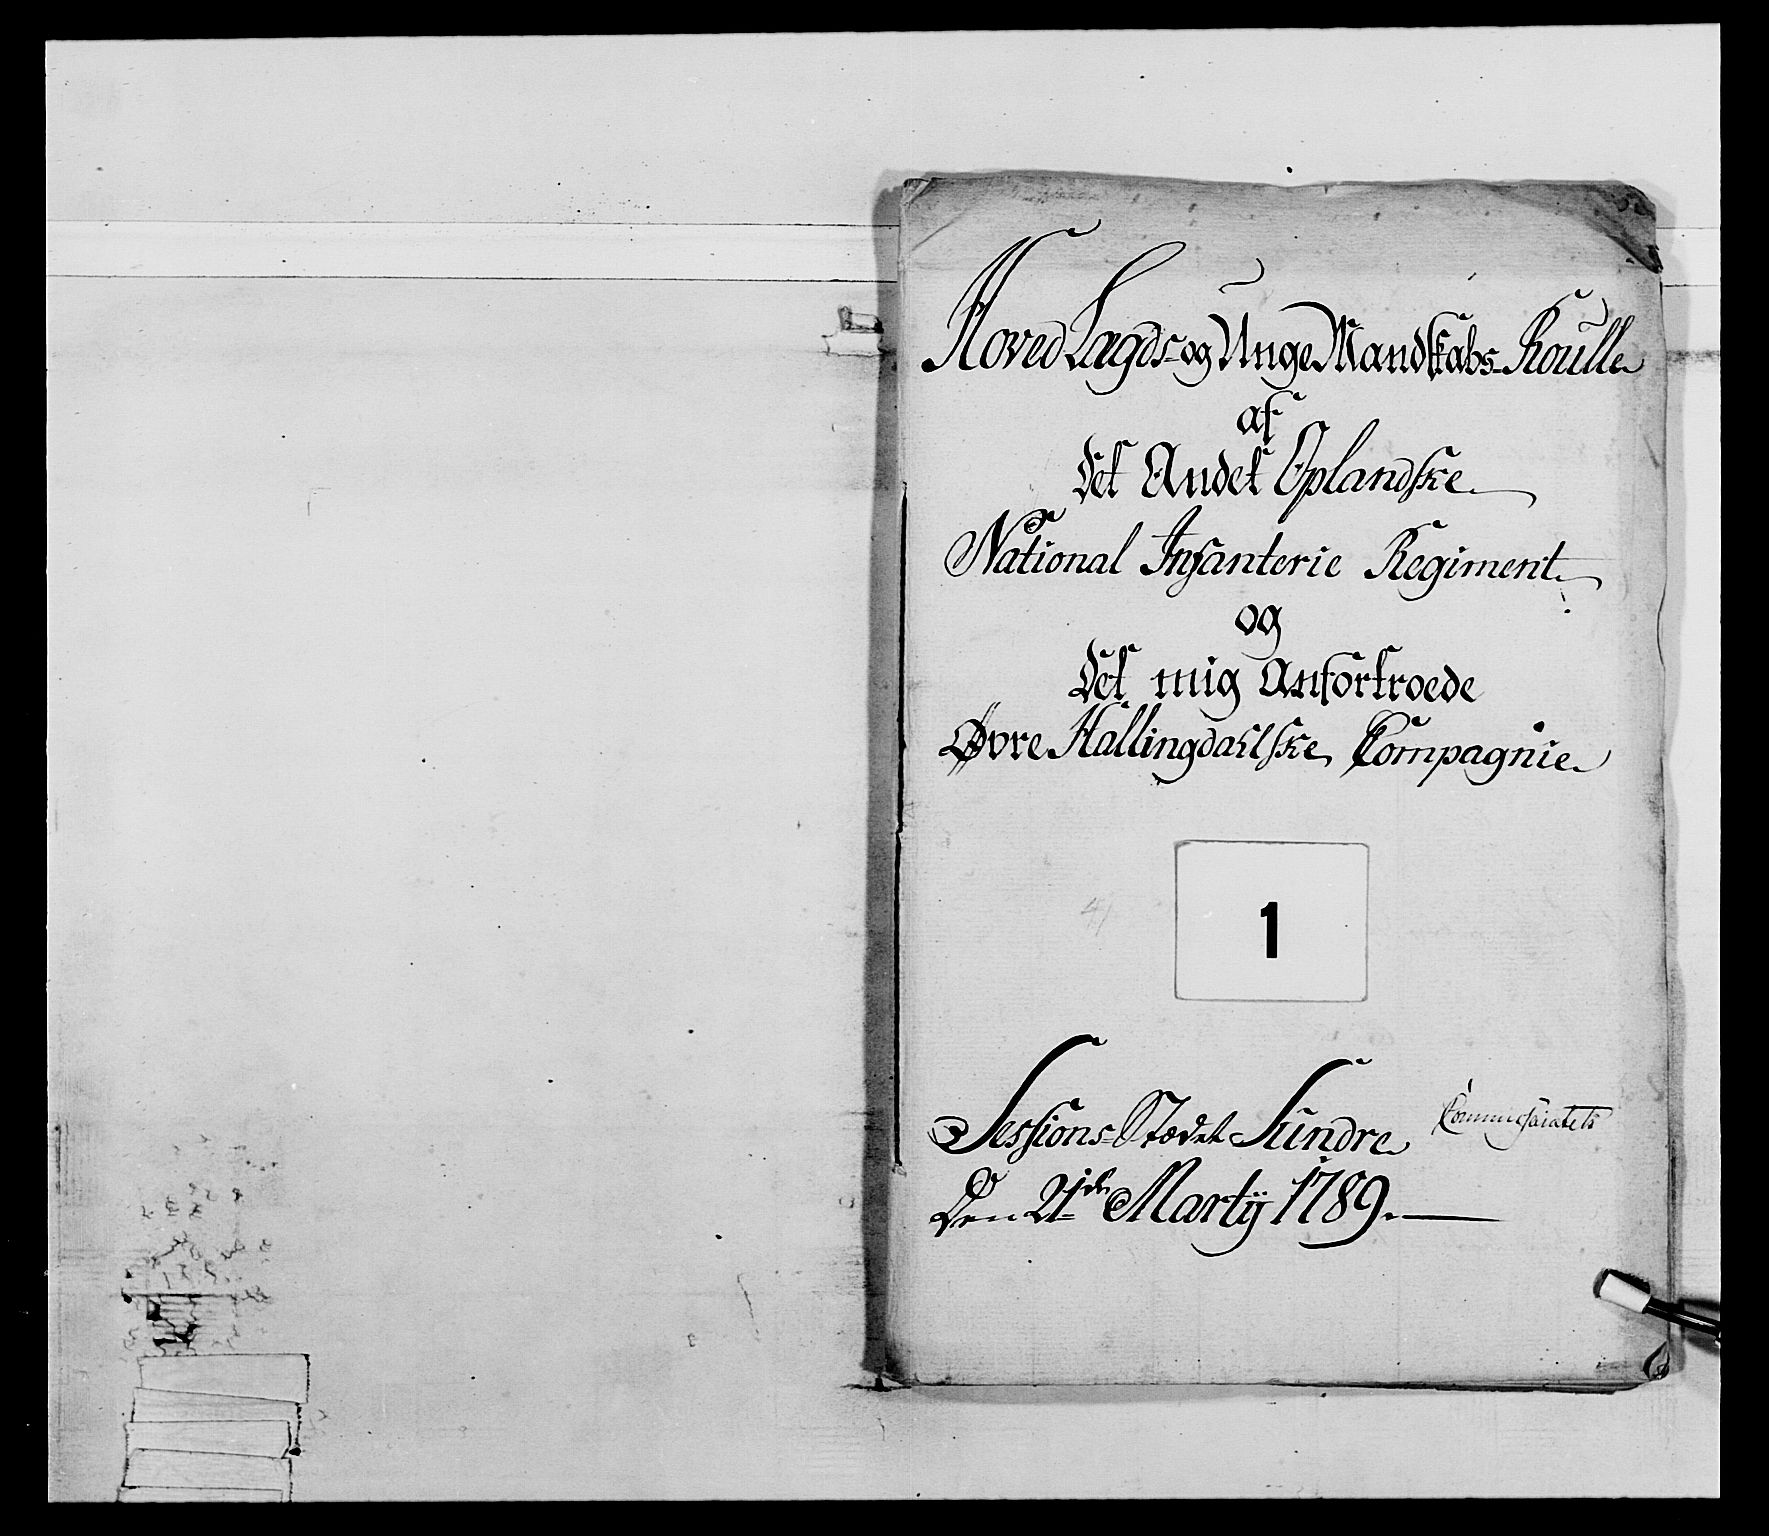 Hoved Lægds- og Unge Mandskabs-Roulle
af
det Andet Oplandske
National Infanterie Regiment
og
det mig Anfortroede
Øvre Hallingdahlske Compagnie
1
Sessions-Stædet Sundre
Commissariatets
Den 21de Martij 1789.